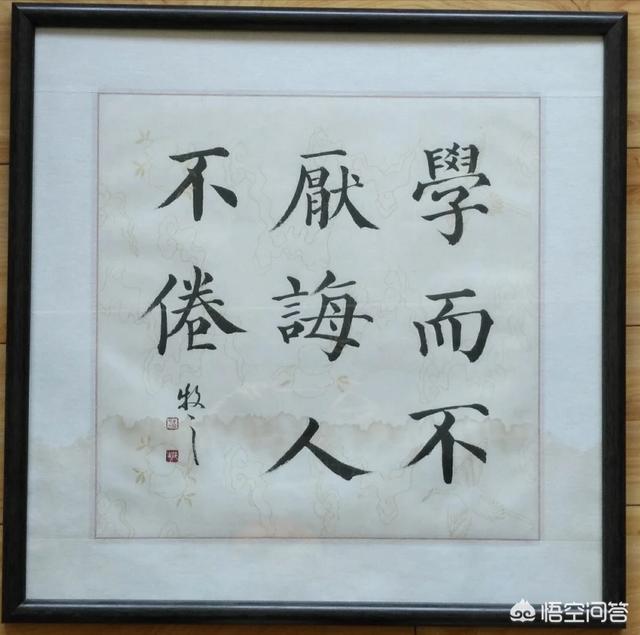 學而不
厭誨人
不倦
牧之
悟空问答